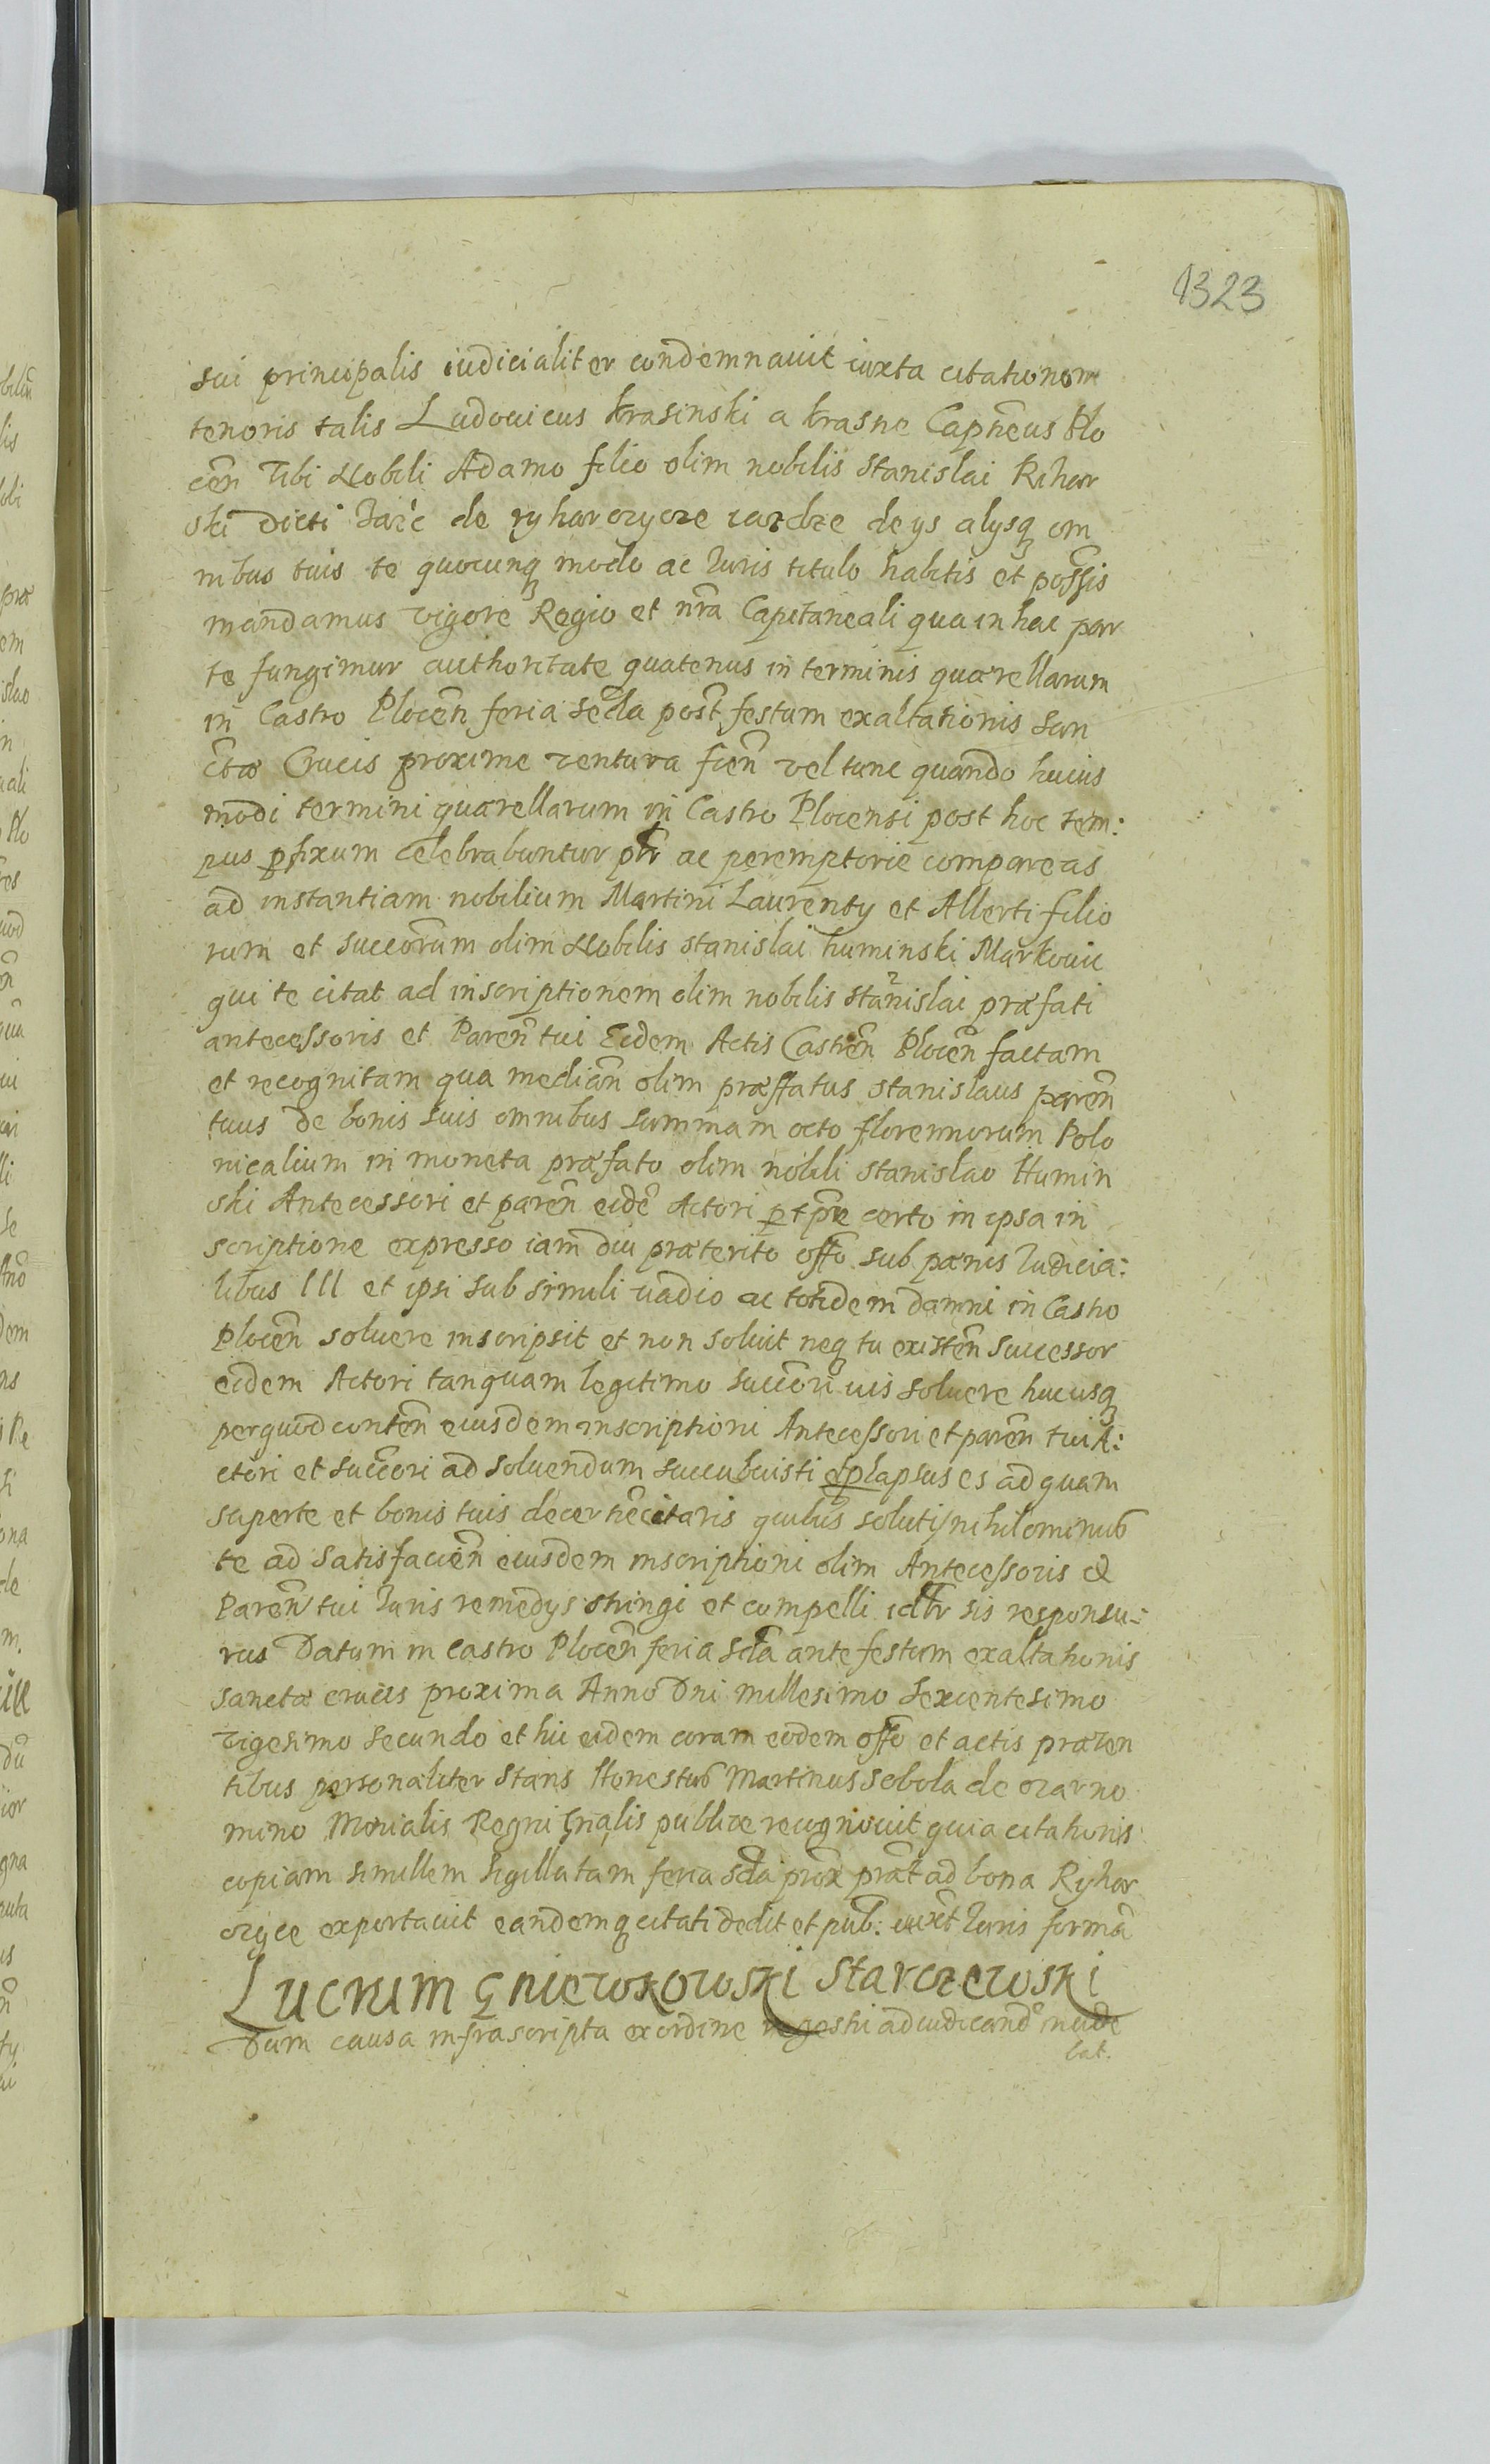 1323
sui principalis iudicialiter condemnauit iuxta citationem
tenoris talis Ludouicus krasinski a krasne Capñeus Plo
cen̄ Tibi Nobili Adamo filio olim nobilis Stanislai Rihar
ski dicti de ryharczycze de ys alysq om
nibus tuis te quocunq modo ac Iuris titulo habitis et possis
mandamus vigore Regio et nrã Capitaneali qua in hac par
te fungimur authoritate quatenus in terminis quærellarum
in Castro Plocen̄ feria secda post festum exaltationis san
ctæ Crucis proxime ventura fien̄ vel tunc quando huius
modi termini quærellarum in Castro Plocensi post hoc tem:
pus pfixum celebrabuntur plr ac peremptorie compareas
ad instantiam nobilium Martini Laurenty et Alberti filio
rum et succorum olim Nobilis Stanislai huminski
qui te citat ad inscriptionem olim nobilis Stanislai præfati
antecessoris et Paren̄ tui Eidem Actis Castren̄ Plocen̄ factam
et recognitam qua median̄ olim præffatus Stanislaus paren̄
tuus de bonis suis omnibus summam octo florennorum Polo
nicalium in moneta præfato olim nobili Stanislao Humin
ski Antecessori et paren̄ eidē Actori p tpre certo in ipsa in
scriptione expresso iam diu præterito offo sub pænis Iudicia:
libus III et ipsi sub simili vadio ac totidem damni in Castro
Plocen̄ soluere inscripsit et non soluit neq tu existen̄ successor
eidem Actori tanquam legitimo succori vis soluere hucusq
per quod conten̄ eiusdem inscriptioni Antecessori et paren̄ tui A:
ctori et succori ad soluendum succubuisti lapsus es ad quam
super te et bonis tuis citaris quibus solutis nihilominus
te ad satisfacien̄ eiusdem inscriptioni olim Antecessoris et
Paren̄ tui Iuris remedys stringi et compelli idlr sis responsu:
rus Datum in Castro Plocen̄ feria scda ante festum exaltationis
sanctæ crucis proxima Anno Dni millesimo sexcentesimo
vigesimo secundo et hic eidem coram eodem offo et actis præsen
tibus personaliter stans Honestus Martinus Sebola de czarno
mino Mrialis Regni Gnalis publice recognouit quia citationis
copiam simillem sigillatam feria scda prox prat ad bona Ryhar
czyce exportauit eandemq citati dedit et pub: iuxt Iuris formã
Lucrum Gniewkowski Starczewski
Dum causa infrascripta ex ordine regestri ad iudicand incide
bat.